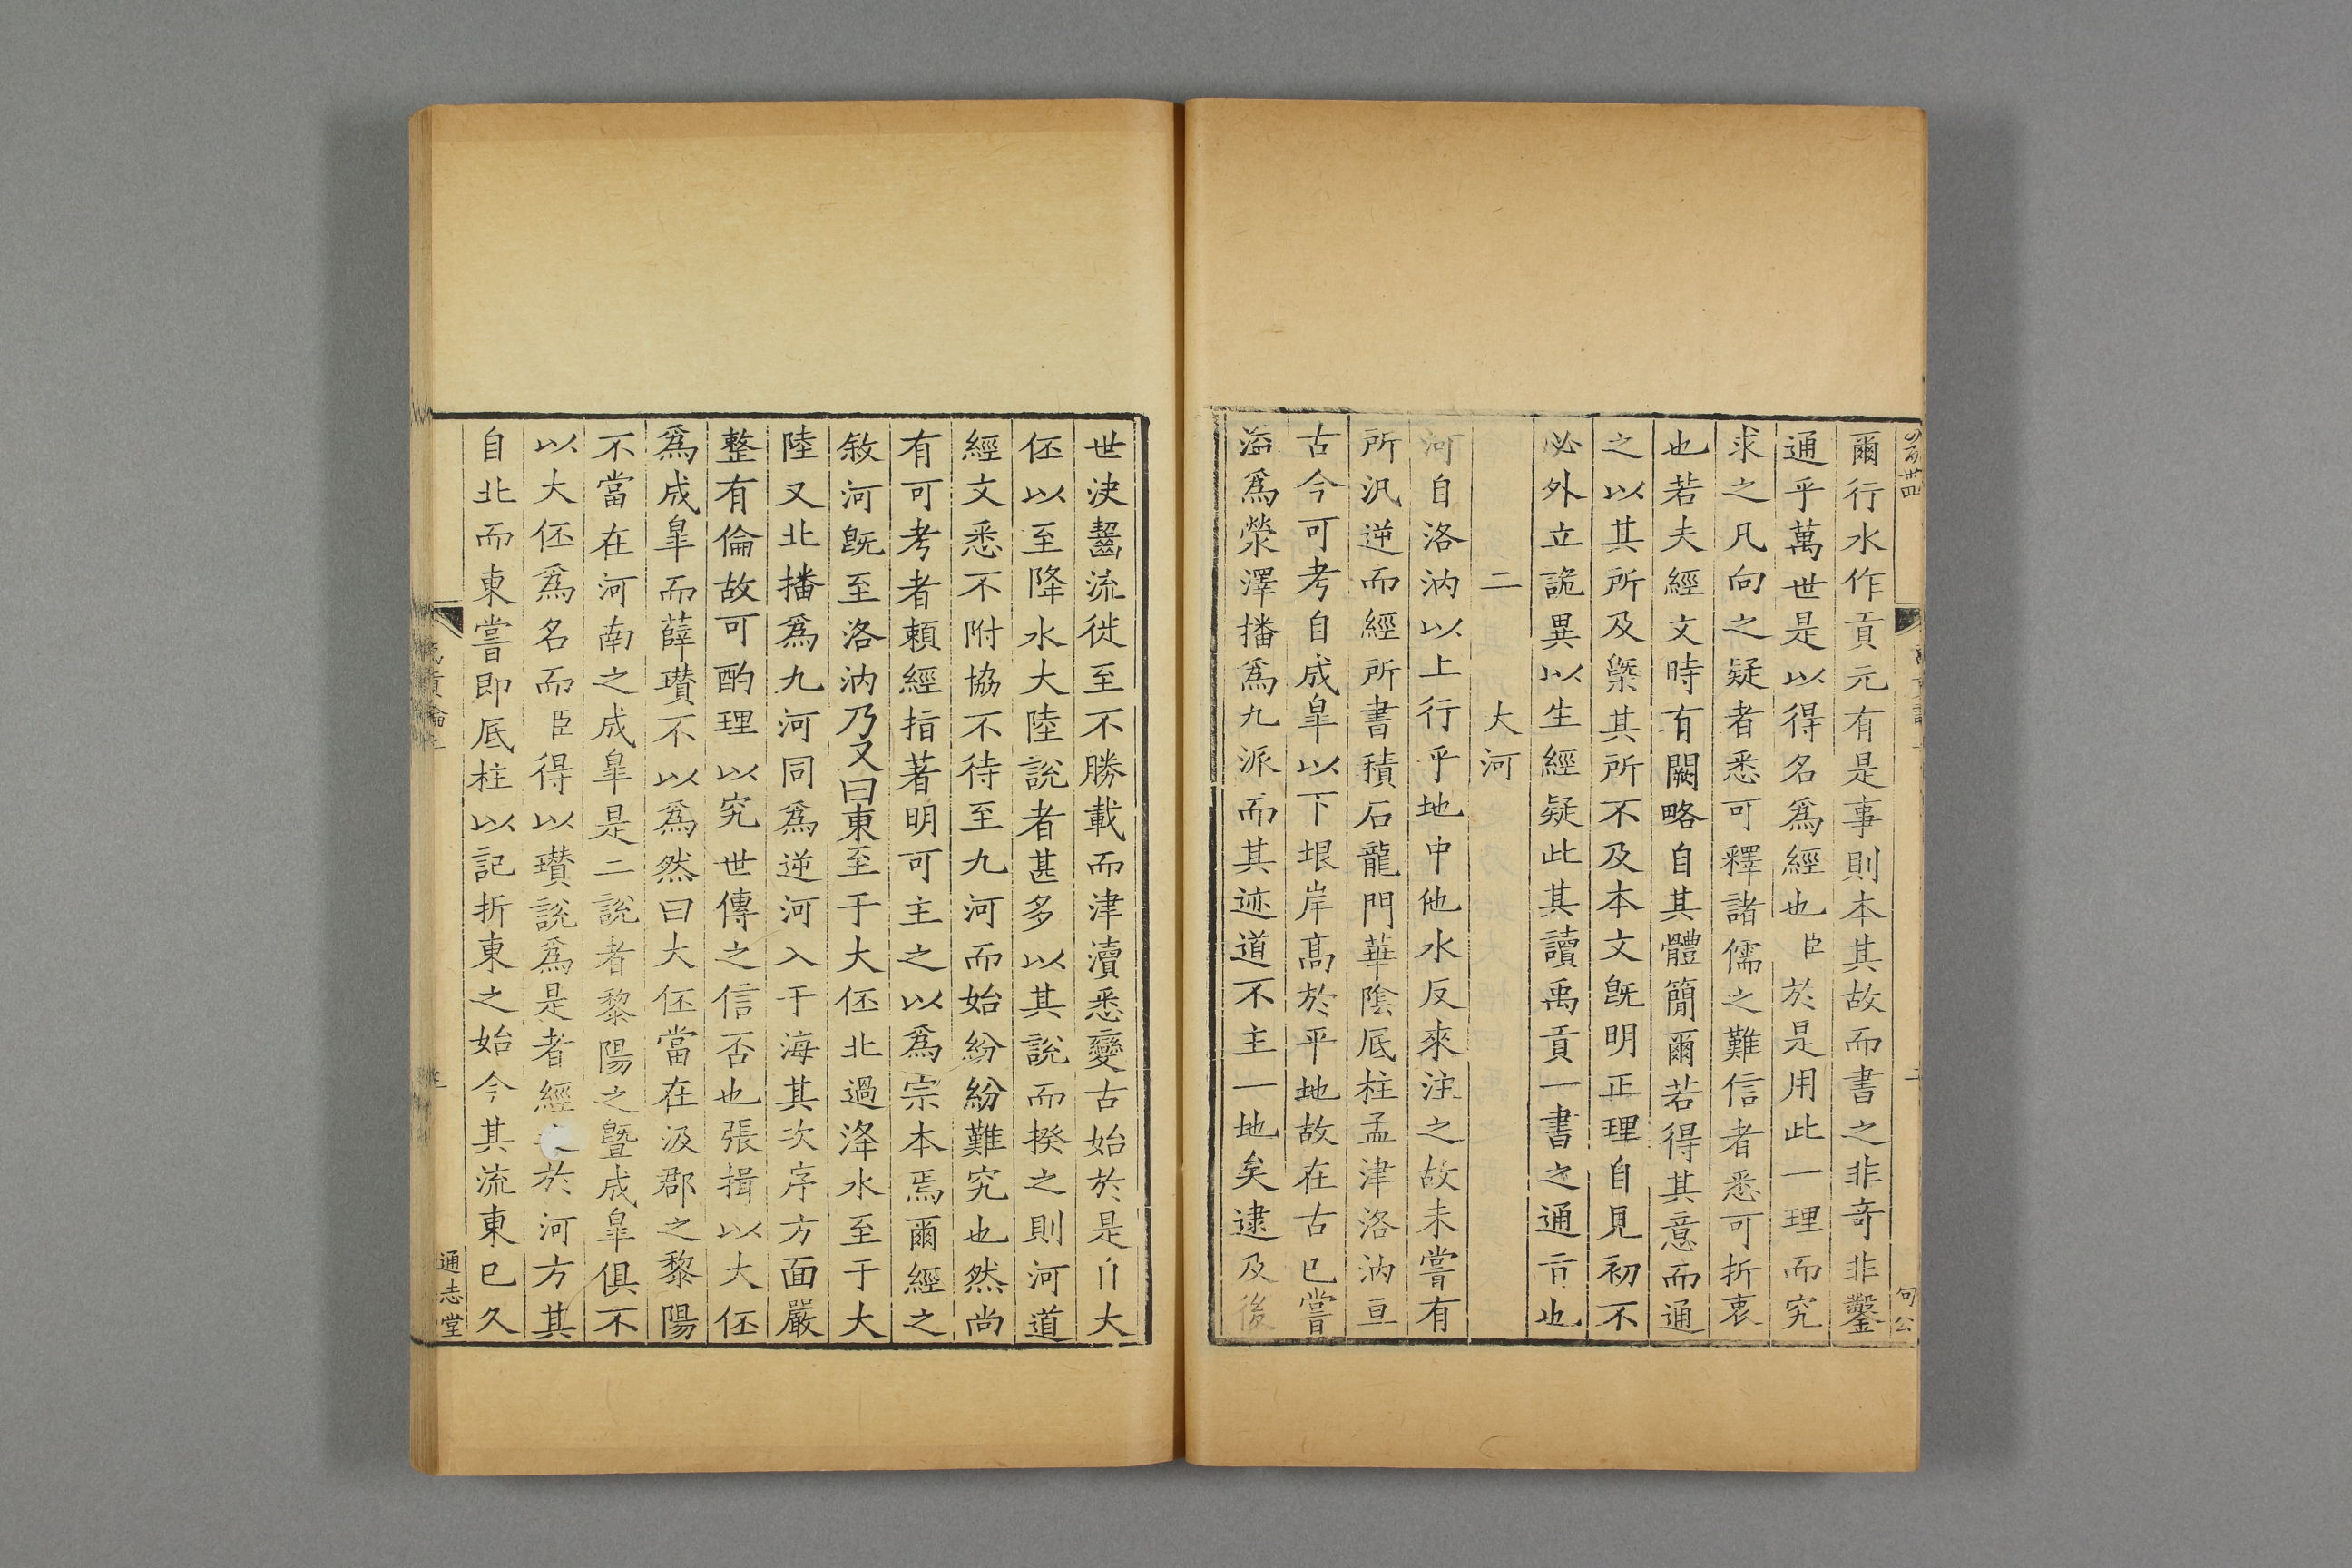 爾行水作貢元有是事則本其故而書之非奇非鑿
通乎萬世是以得名爲經也臣於是用此一理而究
求之凡向之疑者悉可釋諸儒之難信者悉可折衷
也若夫經文時有闕略自其體簡爾若得其意而通
之以其所及槩其所不及本文旣明正理自見初不
必外立詭異以生經疑此其讀禹貢一書之通㫖也
二　大河
河自洛汭以上行乎地中他水反來注之故未嘗有
所汎逆而經所書積石龍門華陰底柱孟津洛汭亘
古今可考自成皐以下垠岸高於平地故在古已嘗
溢爲滎澤播爲九派而其迹道不主一地矣逮及後
世決齧流徙至不勝載而津瀆悉變古始於是大
伾以至降水大陸說者甚多以其說而揆之則河道
經文悉不附協不待至九河而始紛紛難究也然尚
有可考者賴經指著明可主之以爲宗本焉爾經之
敘河旣至洛汭乃又曰東至于大伾北過洚水至于大
陸又北播爲九河同爲逆河入于海其次序方面嚴
整有倫故可酌理以究世傳之信否也張揖以大伾
爲成皐而薛瓚不以爲然曰大伾當在汲郡之黎陽
不當在河南之成皐是二說者黎陽之曁成皐俱不
以大伾爲名而臣得以瓚說爲是者經於河方其
自北而東嘗即底柱以記折東之始今其流東已久
通志堂